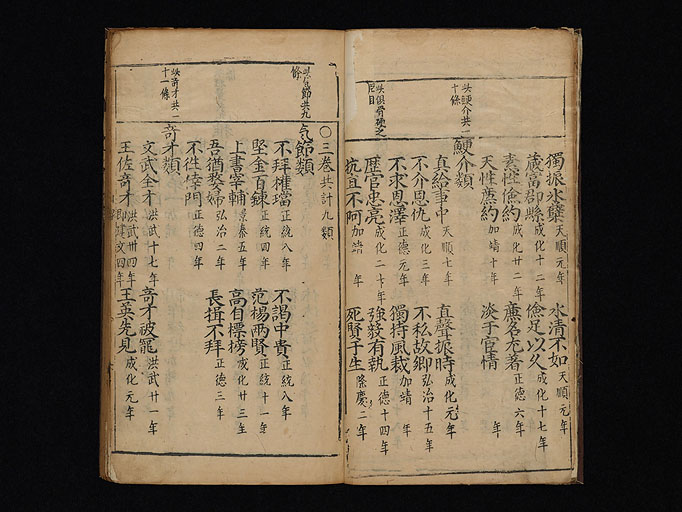 獨振氷蘗天順元年 水清不如天順元年
廉富郡縣成化十二年 儉足以久成化十七年
素性儉約成化廿二年 廉名尤著正德六年
天性廉約加靖十年 淡于宦情 年
此鯁介共一十條
鯁介類
真給事中天順七年 直聲振時成化元年
不介恩仇成化三年 不私故鄉弘治十五年
不求恩澤正德元年 獨持風裁加靖 年
歷官忠亮成化二十年 強毅有執正德十四年
抗直不阿加靖 年 死賢于生隆慶二年
〇三卷共計九類
此气節共九條
気節類
不拜權璫正統八年 不謁中貴正統八年
堅金百鍊正統四年 范楊兩賢正統十一年
上書宰輔景泰五年 高自標榜成化廿三年
吾猶婺婦弘治二年 長揖不拜正德三年
不徃宰門正德四年
此奇才共一十一條
奇才類
文武全才洪武十七年 奇才被寵洪武廿一年
王佐奇才洪武卅四年 王英先見成化元年